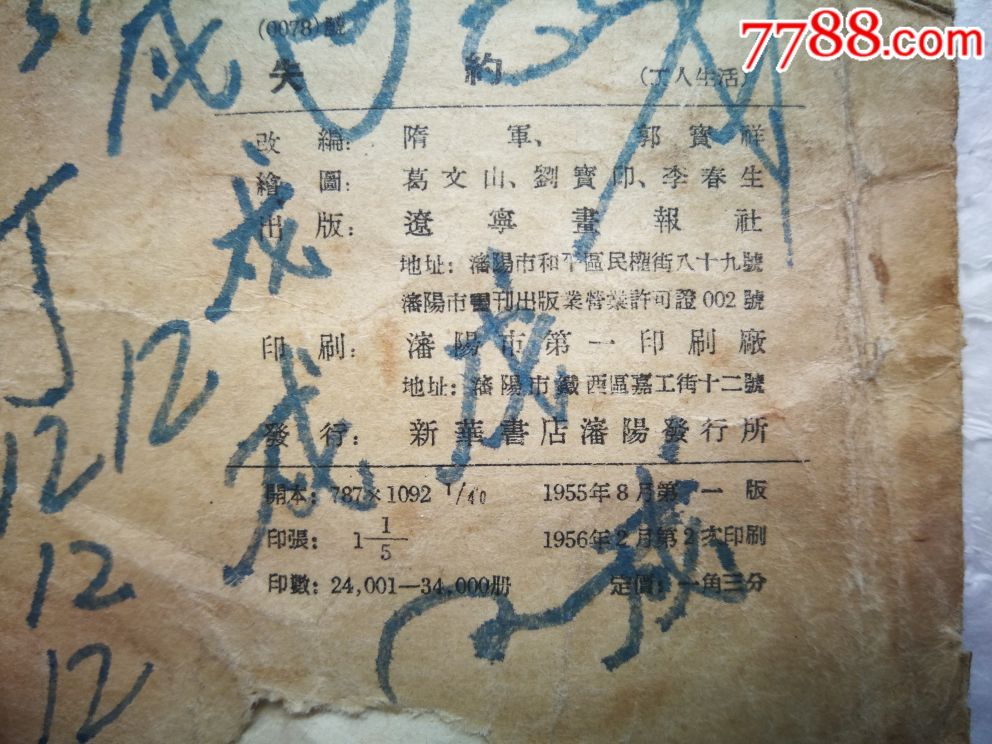 7788.com
(0078)號
失 約 (工人生活)
改 編： 隋 軍、 郭 寶 祥
繪 圖： 葛文山、劉寶印、李春生
出 版： 遼 寧 畫 報 社
地址：瀋陽市和平區民權街八十九號
瀋陽市書刊出版業營業許可證 002 號
印 刷： 瀋陽市第一印刷廠
地址：瀋陽市鐵西區嘉工街十二號
發 行： 新華書店瀋陽發行所
開本：787×1092 1/40 1955年8月第一版
印張：1 1/5 1956年2月第2次印刷
印數：24,001—34,000册 定價：一角三分
12
12
12
12